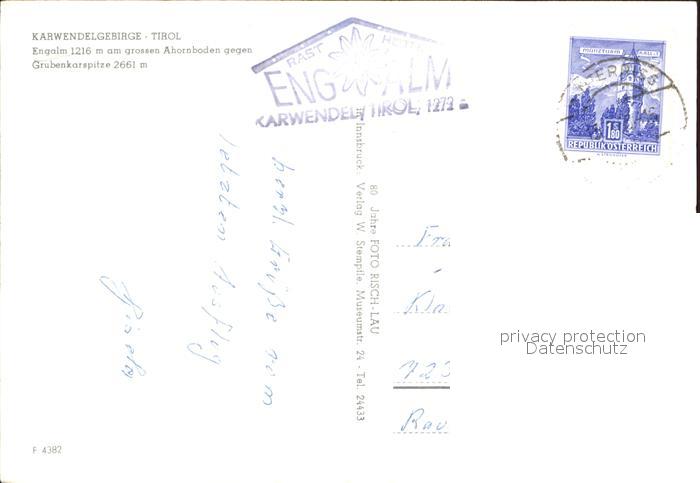 KARWENDELGEBIRGE · TIROL
Engalm 1216 m am grossen Ahornboden gegen
Grubenkarspitze 2661 m
RAST HÜTTE
ENG ALM
KARWENDEL, TIROL,
MÜNZTURM HALL i. T.
1.80
REPUBLIK ÖSTERREICH
herzl. Grüße vom
letzten Ausflug
Innsbruck. Verlag W. Stempfle, Museumstr. 24 - Tel. 24433
80 Jahre FOTO RISCH-LAU
Fra
723
Rav
privacy protection
Datenschutz
F 4382